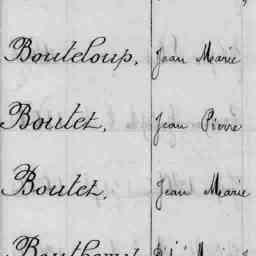 Bouteloup, Jean Marie
Boutet, Jean Pierre
Boutet, Jean Marie